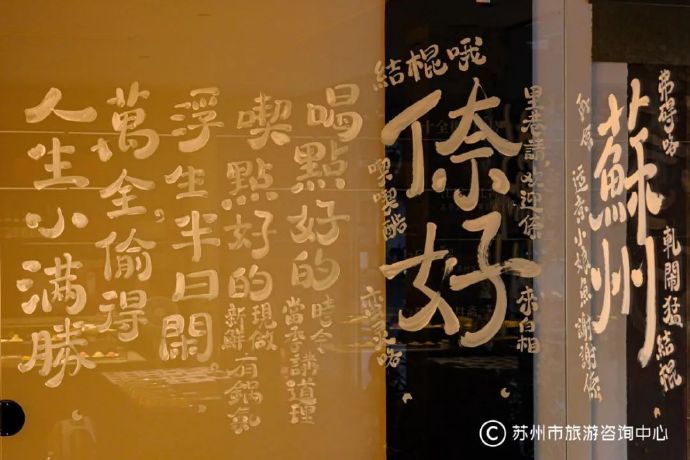 人生小滿勝
萬全偷得
浮生半日閑
喫點好的
新鮮現做有鍋氣
喝點好的
當季時令講道理
結棍哦
倷好
里巷講 欢迎倷 來白相
謝謝倷
蘇州
弗碍咯 軋鬧猛 結棍
©苏州市旅游咨询中心